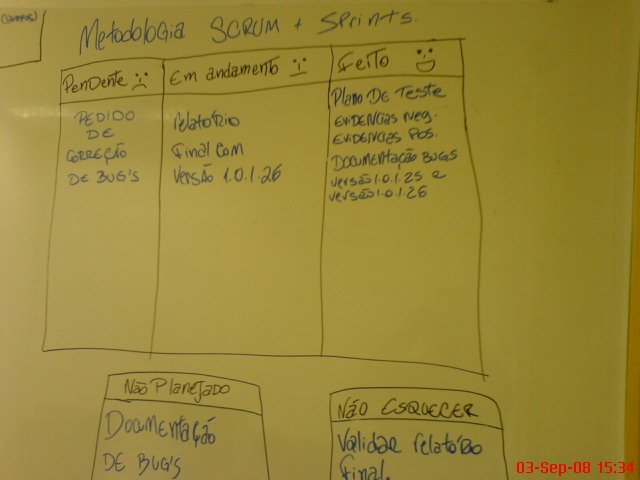 (campos)
Metodologia SCRUM + Sprints.
Pendente
Em andamento
Feito
PEDIDO
DE
CORREÇÃO
DE BUG'S
Relatório
Final com
Versão 1.0.1.26
Plano De Teste
EVIDENCIAS Neg.
EVIDENCIAS Pos.
DOCUMENTAÇÃO BUGS
versão 1.0.1.25 e
versão 1.0.1.26
Não Planejado
DOCUMENTAÇÃO
DE BUG'S
NÃO ESQUECER
Validar relatório
Final
03-Sep-08 15:34